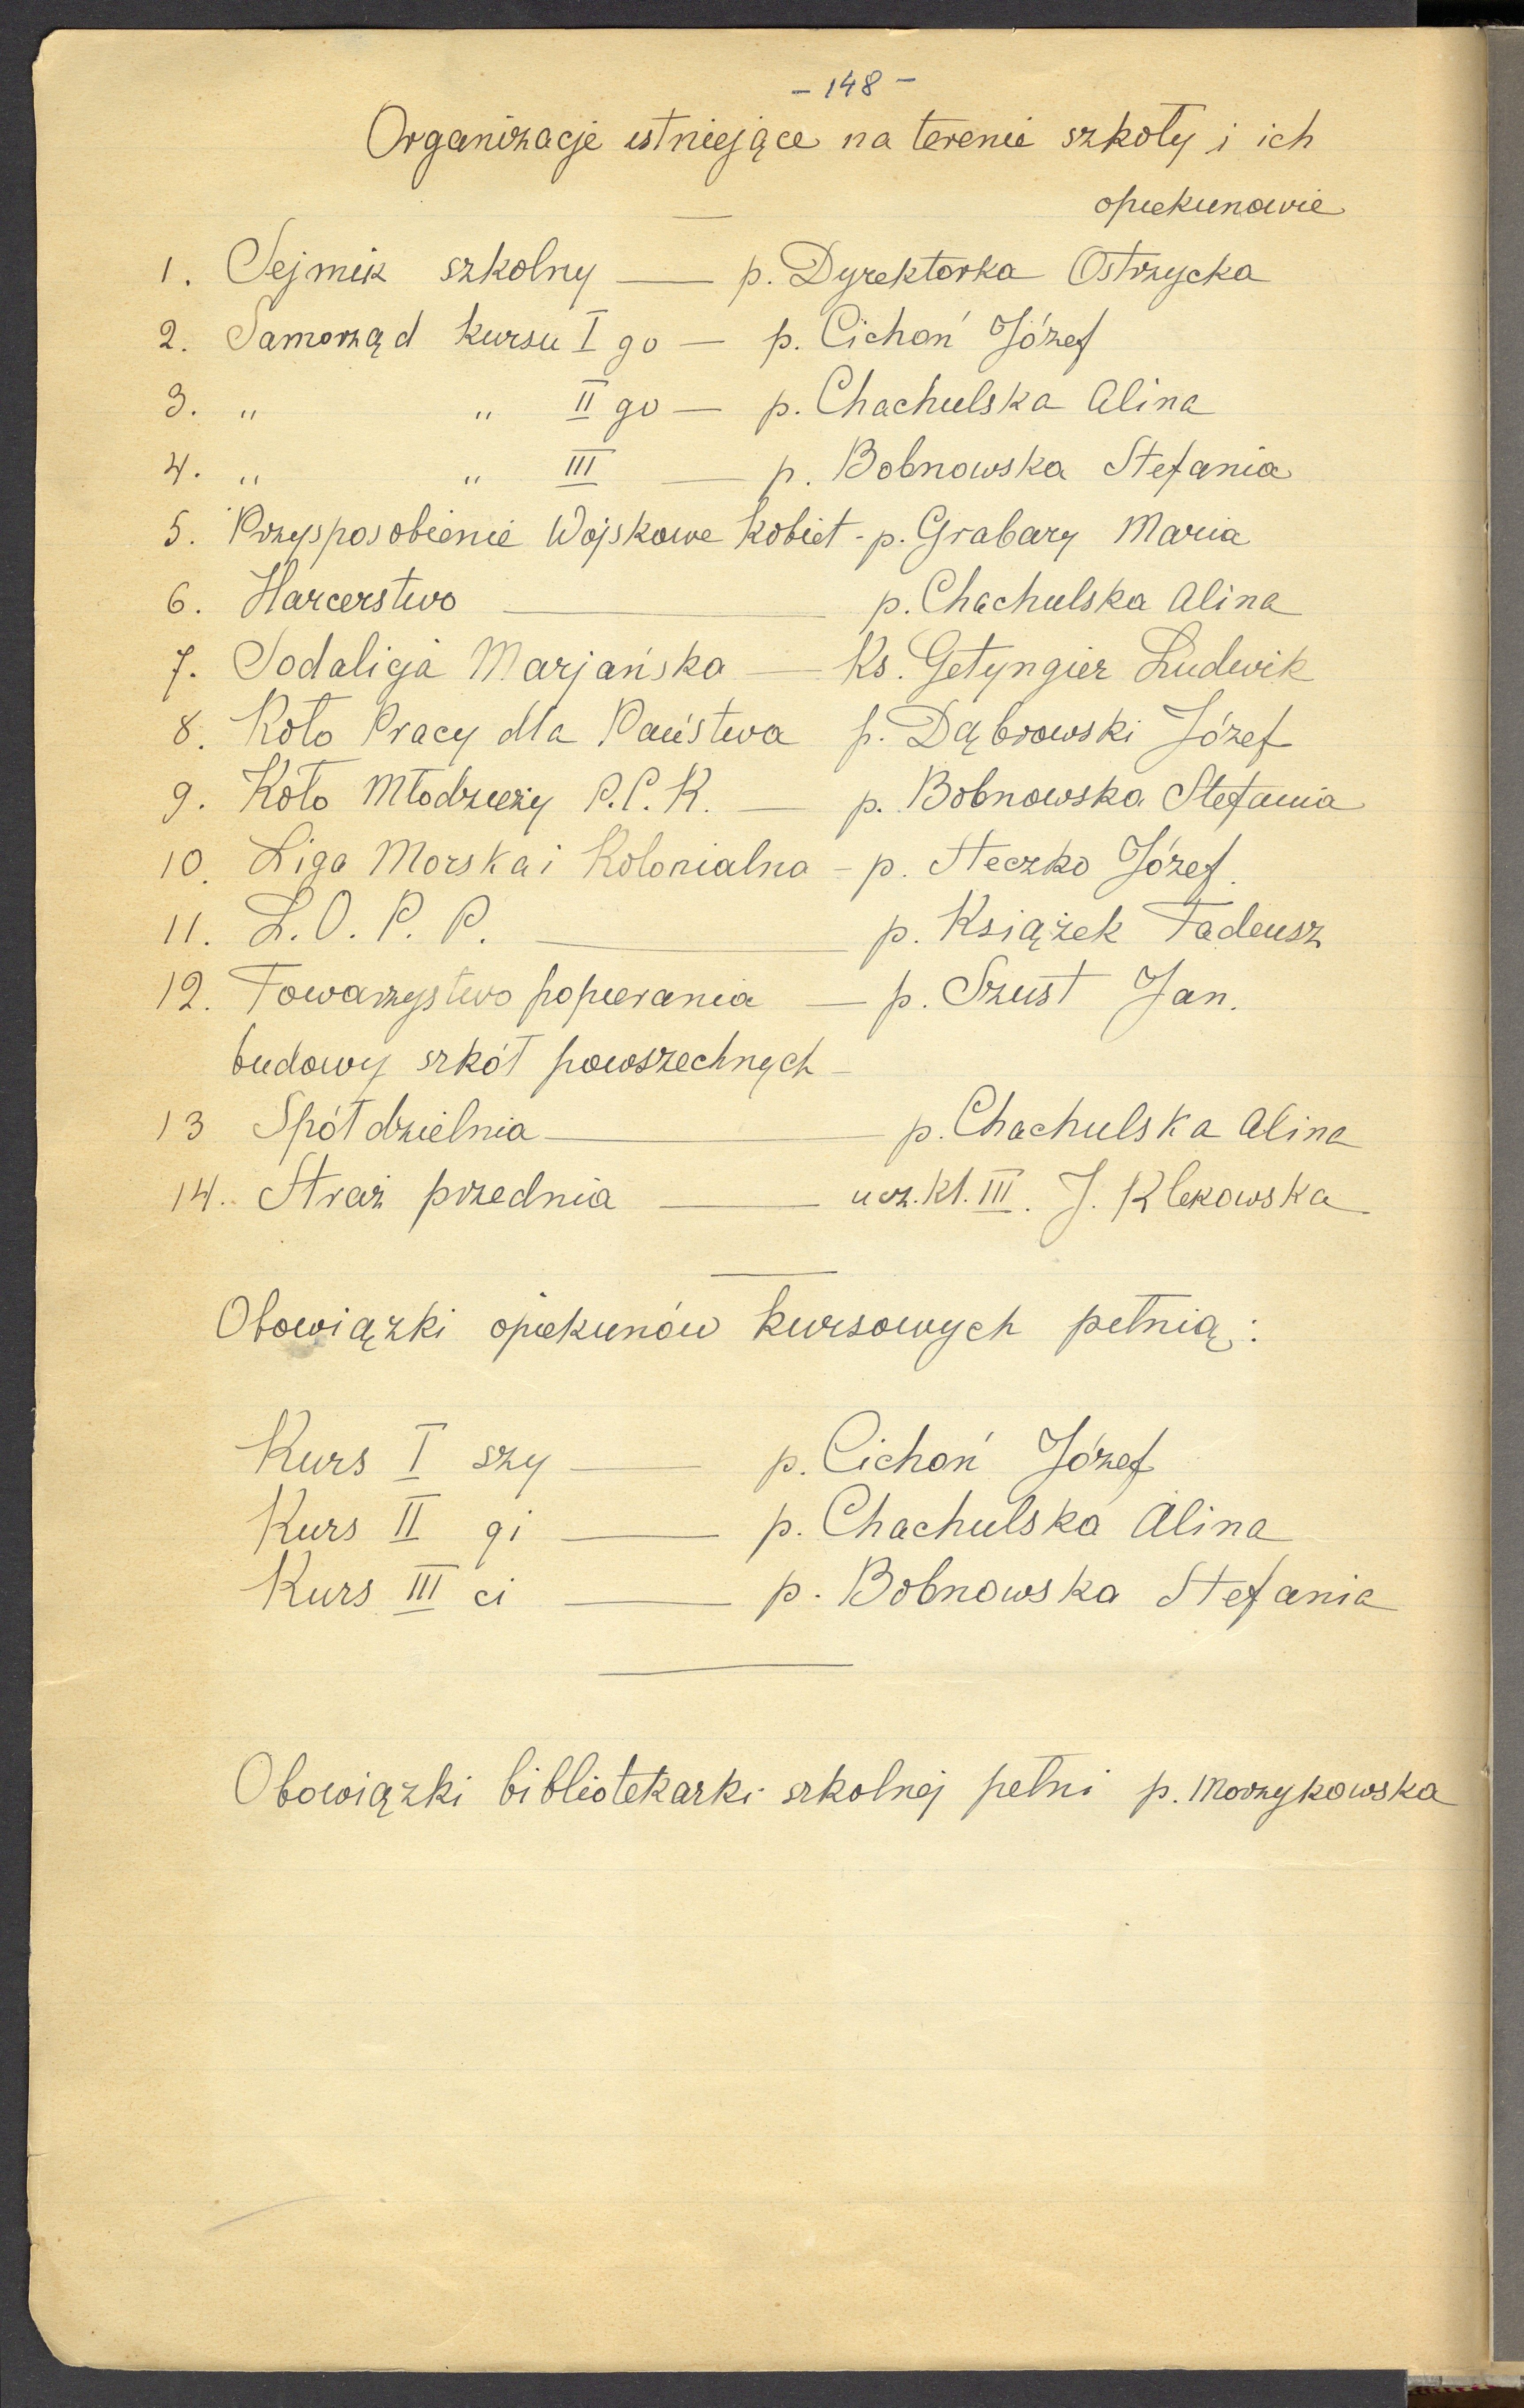 - 148 -
Organizacje istniejące na terenie szkoły i ich
opiekunowie
1. Sejmik szkolny — p. Dyrektorka Ostrzycka
2. Samorząd kursu I go — p. Cichoń Józef
3. " " II go — p. Chachulska Alina
4. " " III — p. Bobnowska Stefania
5. Przysposobienie Wojskowe Kobiet - p. Grabary Maria
6. Harcerstwo — p. Chachulska Alina
7. Sodalicja Marjańska — Ks. Getyngier Ludwik
8. Koło Pracy dla Państwa p. Dąbrowski Józef
9. Koło Młodzieży P.C.K. — p. Bobnowska Stefania
10. Liga Morska i Kolonialna - p. Steczko Józef.
11. L.O.P.P. — p. Książek Tadeusz
12. Towarzystwo popierania — p. Szust Jan.
budowy szkół powszechnych -
13 Spółdzielnia — p. Chachulska Alina
14. Straż przednia — ucz. kl. III. J. Klekowska
Obowiązki opiekunów kursowych pełnią:
Kurs I szy — p. Cichoń Józef
Kurs II gi — p. Chachulska Alina
Kurs III ci — p. Bobnowska Stefania
Obowiązki bibliotekarki szkolnej pełni p. Morzykowska